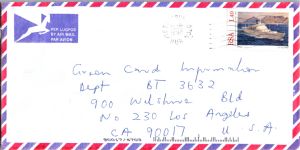 PER LUGPOS
BY AIR MAIL
PAR AVION
RSA 1.40
Green Card Information
Dept BT 3632
900 Wilshire Bld
No 230 Los Angeles
CA 90017 U S.A.